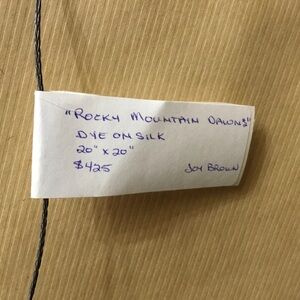 "ROCKY MOUNTAIN DAWNS"
DYE ON SILK
20" x 20"
$425
JOY BROWN